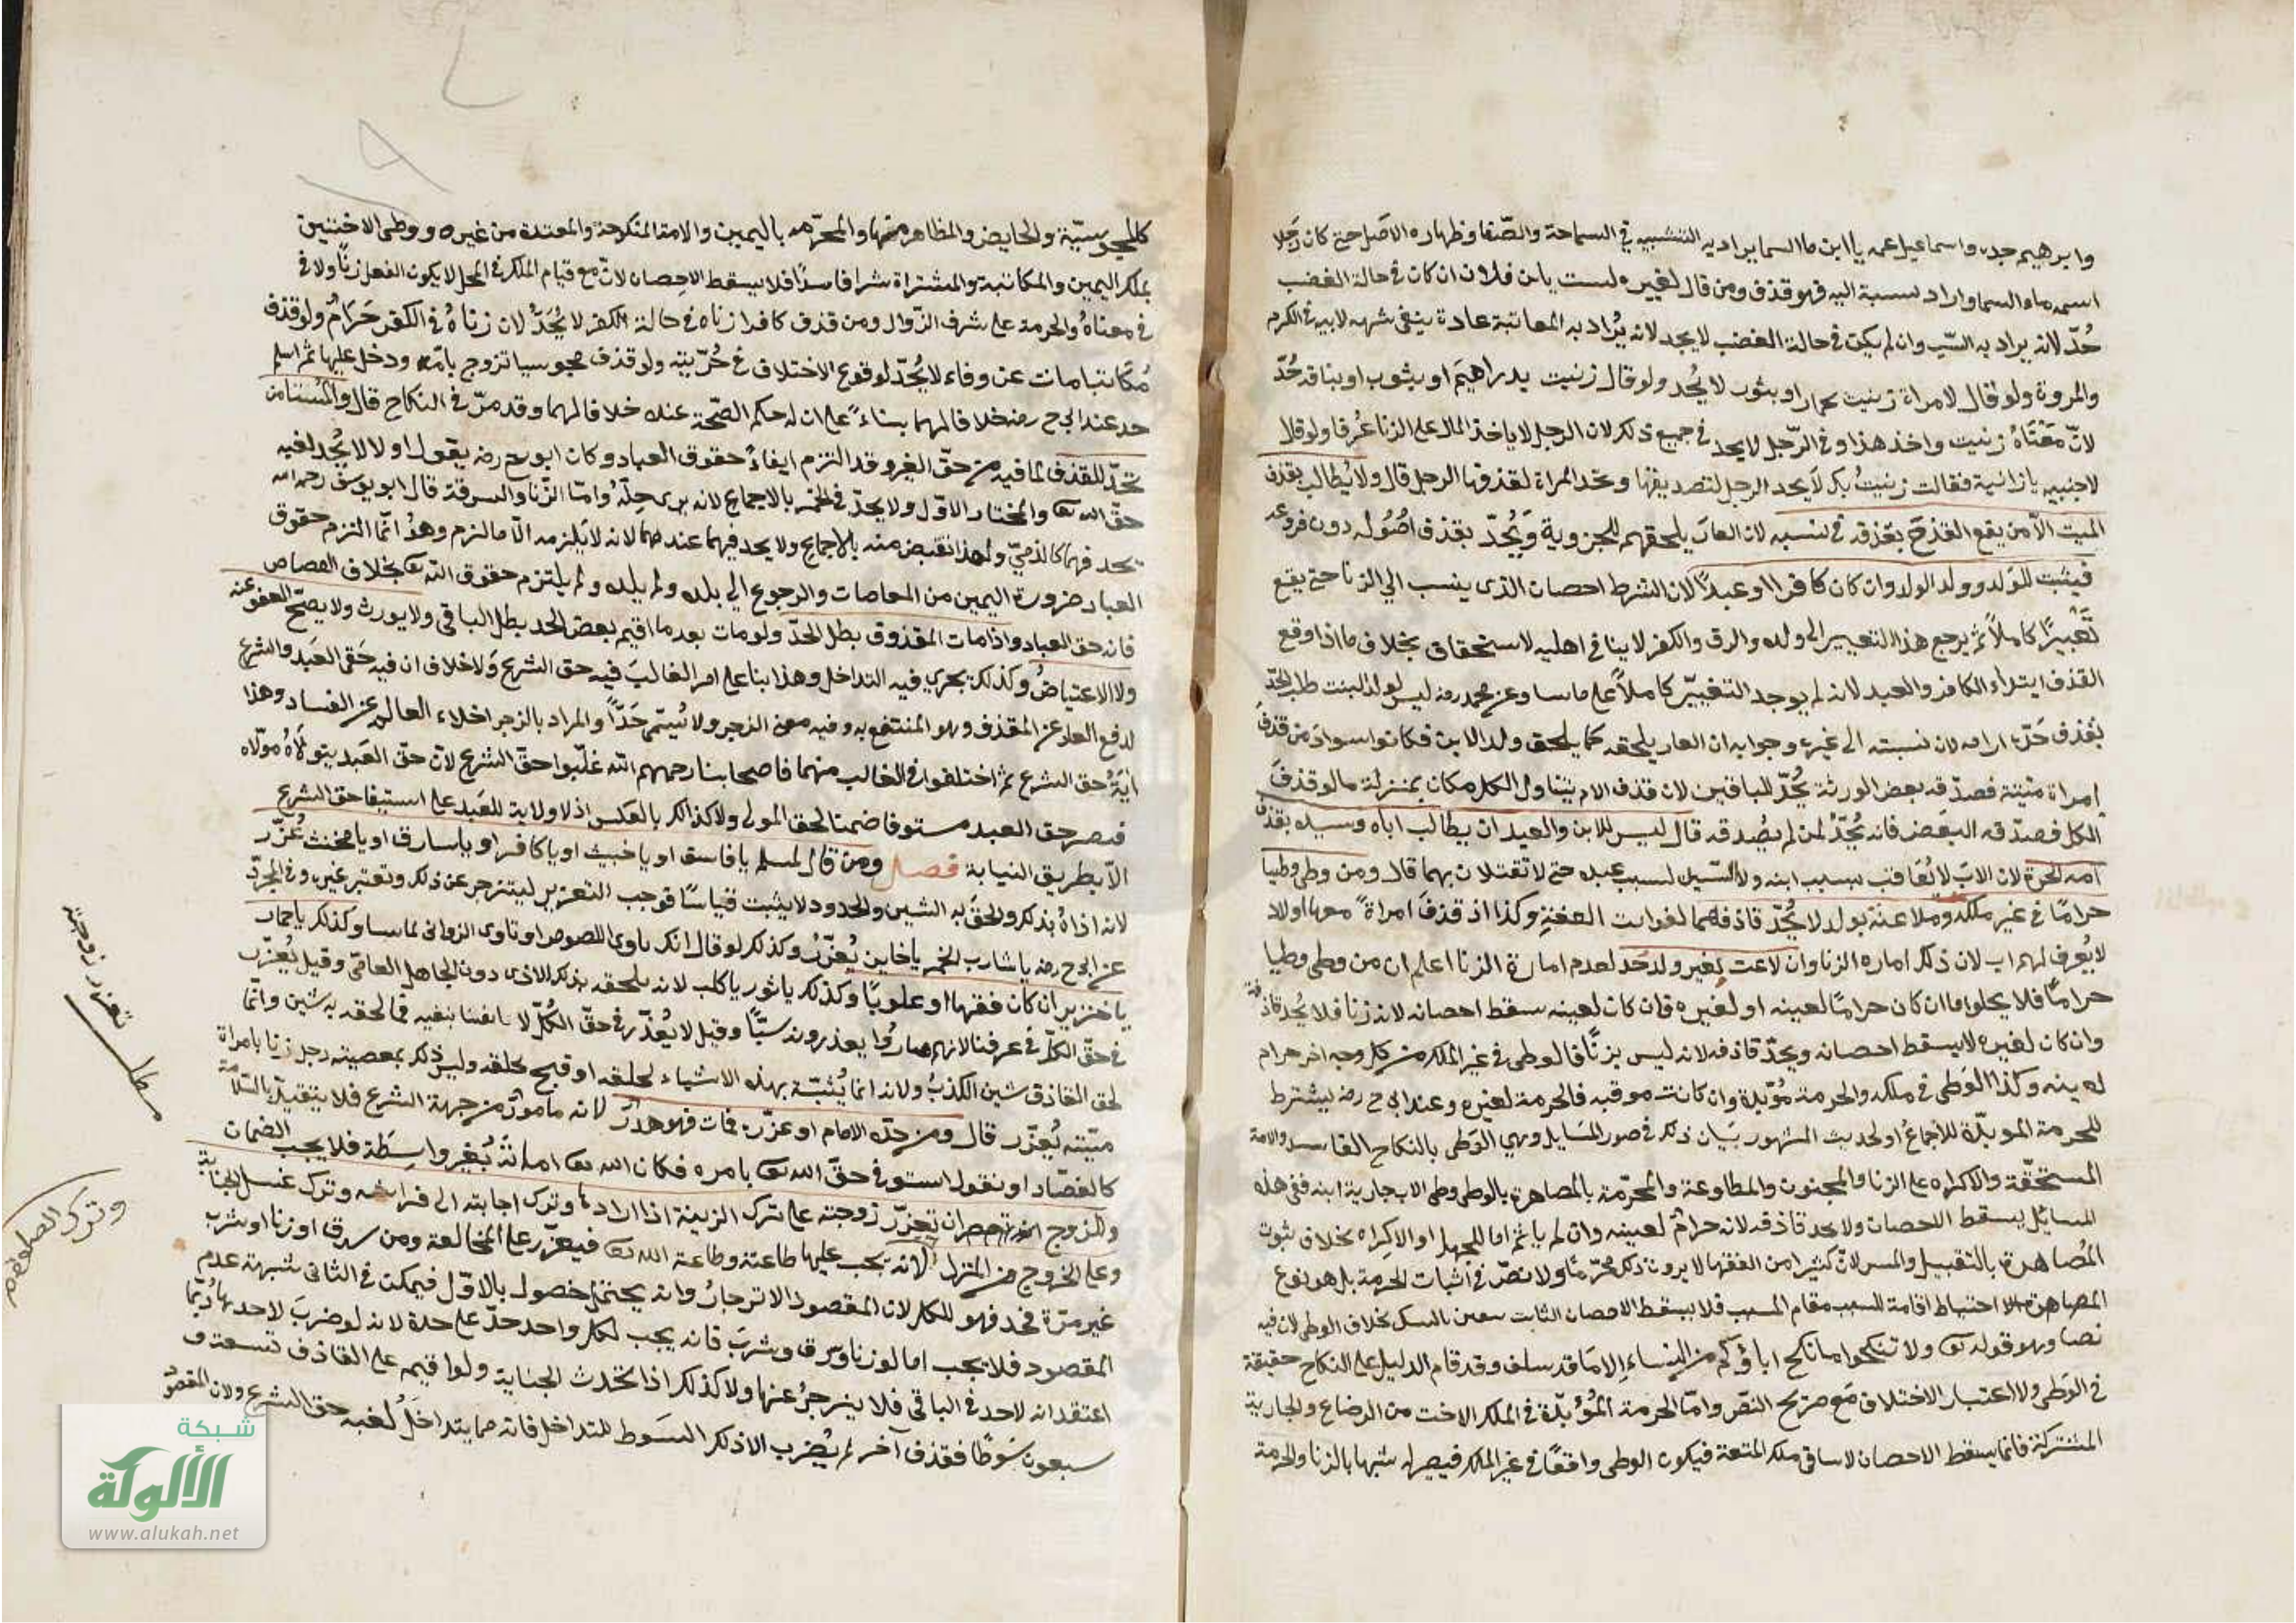 وابرهيم جده واسماعيل عمه يا ابن ما السما يراد به التشبيه في السماحة والصفا وظهاره الاصل حتى كان رجلا
اسمه ماء السما واراد نسبة اليه فهو قذف ومن قال لغيره لست يابن فلان ان كان في حالة الغضب
حُدّ لانه يراد به السبّ وان لم يكن في حالة الغضب لا يحد لانه يُراد به المعاتبة عادة ينفي شبهه لابيه في الكرم
والمروة ولو قال لامراة زنيت بحمار او بثور لا يُحد ولو قال زنيت بدراهيم او بثوب او بناقة حُدّ
لانّ معناه زنيت واخذ هذا وفي الرّجل لا يحد في جميع ذلك لان الرجل لا ياخذ المال على الزنا عُرفا ولو قال
لاجنبيه يا زانية فقالت زنيتُ بك لا يحد الرجل لتصديقها وتحد المراة لقذفها الرجل قال ولا يُطالب بقذف
الميت الّا من يقع القذح بقذفه في نسبه لان العار يلحقهم للجزوية ويُحدّ بقذف اصُوله دون فروعه
فيثبت للولد وولد الولد وان كان كافرا او عبدًا لان الشرط احصان الذى ينسب الي الزنا حتى يقع
تعييرًا كاملًا ثم يرجع هذا التعيير الى ولده والرق والكفر لا ينافي اهليه الاستحقاق بخلاف ما اذا وقع
القذف ابتداء الكافر والعبد لانه لم يوجد التعيير كاملًا على ما سا وعن محمد رضه ليس لولد البنت طلب الحدّ
بقذف جدّه ارامه لان نسبته الى غيره وجوابه ان العار يلحقه كما يلحق ولد الابن فكانوا سوا ومن قذف
امراة ميتة فصدّقه بعض الورثة يُحدّ للباقين لان قذف الام يتناول الكل مكان بمنزلة ما لو قذف
الكل فصدّقه البعض فانه يُحدّ لمن لم يصُدقه قال ليس للابن والعبد ان يطالب اباه وسيده بقذف
امه الحرة لان الاب لا يُعاقب بسبب ابنه ولا السّيد لسبب عبده حتى لا تقتلان بهما قال ومن وطى وطيا
حرامًا في غير ملكه وملاعنة بولد لا يُحدّ قاذفهما لفوات العفة وكذا اذ قذف امراة معها اولاد
لا يُعرف لهم اب لان ذلك اماره الزنا وان لاعنت بغير ولد حُد لعدم امارة الزنا اعلم ان من وطى وطيا
حرامًا فلا يخلوا ما ان كان حرامًا لعينه او لغيره فان كان لعينه سقط احصانه لانه زنا فلا يُحد قاذفه
وان كان لغيره لا يسقط احصانه ويحدّ قاذفه لانه ليس بزنًا فالوطى في غير الملك من كل وجه اخر حرام
لعينه وكذا الوَطى في ملكه والحرمة مُؤبّدة وان كانت موقبه فالحرمة لغيره وعند ابي ح رضه يشترط
للحرمة الموبدّة للاجماعُ او لحديث المشهور بيَان ذلك في صور المسَايل وهي الوَطى بالنكاح الفاسد والامة
المستحقّة والاكراه على الزنا والمجنون والمطاوعة والمحرّمة بالمصاهرة بالوطى وطى الاب جارية ابنه ففي هذه
المسائل يسقط الاحصان ولا يحد قاذفه لانه حرامٌ لعينه وان لم ياثم اما للجهل او الاكراه بخلاف ثبوت
المُصاهرة بالتقبيل والمس لانّ كثيرا من الفقها لا يرون ذلك محرّمًا ولا نصّ في اثبات الحرمة بل هو نوع
احتياط اقامة للسبب مقام المسبب فلا يسقط الاحصان الثابت بيقين بالشك بخلاف الوطى لان فيه
نصا وهو قوله تع ولا تنكحوا ما نكح اباؤكم من النساء الا ما قد سلف وقد قام الدليل على النكاح حقيقة
في الوَطى ولا اعتبار الاختلاف مع صريح النصّ وامّا الحرمة المُؤبّدة في الملك الاخت من الرضاع والجارية
المشتركة فانما يسقط الاحصان ملك المتعة فيكون الوطى واقعًا في غير الملك فيصير له شبها بالزنا والحرمة
كالمجوسيّة والحايض والمظاهر منها والمحرّمه باليمين والامة المنكوحة والمعتدة من غيره ووطى الاختين
بملك اليمين والمكاتبة والمشتراة شرا فاسدًا فلا يسقط الاحصان لانّ مع قيام الملك في المحل لا يكون الفعل زنًا ولا في
في معناهُ والحرمة على شرف الزّوال ومن قذف كافرا زناه في حالة الكفر لا يُحَدُّ لان زناهُ في الكفر حَرَامٌ ولو قذف
مُكَاتبا مات عن وفاء لا يُحدّ لوقوع الاختلاف في حُرّيته ولو قذف مجوسيا تزوج بامّه ودخل عليها ثم اسلم
حد عند ابي ح رضه خلافا لهما بناءً على ان له حكم الصّحة عنده خلافا لهما وقد مرّ في النكاح قال والمُستامن
يُحدّ للقذف لما فيه من حقّ الغير وقد التزم ايفاءُ حقوق العباد وكان ابو ح رضه يقول اولا لا يُحد لغبه
حقّ الله تع والمختار الاوّل ولا يحدّ في الخمر بالاجماع لانه يرى حِلّهُ وامّا الزّنا والسرقة قال ابو يوسف رحمه الله
يحد فهما كالذميّ ولهذا تقبض منه بالاجماع ولا يحد فيهما عندهما لانه لا يلزمه الّا ما لزم وهوُ انّما التزم حقوق
العباد ضرورة اليمين من المعاصات والرجوع الي بلده ولم يلتزم حقوق الله تع بخلاف القصاص
فانه حق العباد واذا مات المقذوف بطل الحدّ ولو مات بعد ما اقيم بعض الحد بطل الباقى ولا يورث ولا يصحّ العفو عنه
ولا الاعتياضُ وكذلك يجري فيه التداخل وهذا بنا على امر الغالبَ فيه حق الشرع ولا خلاف ان فيه حَقى العبَد والشرع
لدفع العار عن المقذف وهو المنتفع به وفيه معنى الزجر ولا يُسمّى حَدًّا والمراد بالزجر اخلاء العالم عن الفساد وهذا
ايةُ حق الشرع ثم اختلفوا في الغالب منهما فاصحابنا رحمهم الله غلّبوا حقّ الشرع لانّ حقّ العَبد يتولّاهُ مولاه
فيصر حق العبد مستوفا ضمنا لحق المولى ولا كذالك بالعكس اذ لا ولاية للعَبد على استيفا حق الشرع
الّا بطريق النيابة فصل ومن قال لمسلم يا فاسق او يا خبيث او يا كافر او يا سارق او يا مخنث عُزّر
لانه اذاهُ بذلك ولحقَ به الشين والحدود لا يثبت قياسًا فوجب التعزير لينزجر عن ذلك وتعتبر غيره وفي المجرّد
عن ابي ح رضه يا شارب الخمر يا خاين يُعزّرُ وكذلك لو قال انك تاوى اللصوص او تاوى الزوانى لما سا وكذلك يا حمار
يا خنزير ان كان فقيها او علويًا وكذلك يا ثور يا كلب لانه يلحقه بذلك الاذى دون الجاهل العامّى وقيل يُعزّر
في حقّ الكلّ في عرفنا لانهم صارُوا يعذرونه سبًّا وقيل لا يُعذّر في حقّ الكُلّ لا بنفيه فما لحقه به شين وانّما
لحق القاذف شين الكذبُ ولانه انما يُشبّه بهذه الاشياء لخلقه او قبح خلقه وليس ذلك بمعصيته رجل زنا بامراة
ميّته يُعزّر قال ومن حدّه الامام او عزّره فمات فهو هدرٌ لانه مامورٌ من جهة الشرع فلا يتقيدّ بالسّلامة
كالفصّاد او نقول استو في حقّ الله تع بامره فكان الله تع اماتهُ بُغير واسِطَة فلا يجب الضمان
وللزوج ان يعزّر زوجته على ترك الزينة اذا ارادها وترك اجابته الى فراشه وترك غسل الجنابة
وعلى الخروج من المنزل لانه يجب عليها طاعته وطاعة الله تع فيعزّر على المخالعة ومن سرق او زنا او شرب
غير مرّة فحد فهو للكل لان المقصود الانزجارُ وانه يحتمل حصول بالاوّل فيمكن في الثانى شبهة عدم
المقصود فلا يجب اما لو زنا وسرق وشربَ فانه يجب لكل واحد حدّ على حدة لانه لو ضربَ لاحدها رُبّما
اعتقد انه لا حد في الباقى فلا ينزجرُ عنها ولا كذلك اذا تحدث الجناية ولو اقيم على القاذف تسعة و
سبعون سَوطًا فقذف آخر لم يُضرب الا ذلك السَوط للتداخل فانه مما يتداخَلُ لغبه حق الشرع ولان المقصُو
مطلب تعزير زوجته
وترك الصلوة
شبكة
الألوكة
www.alukah.net